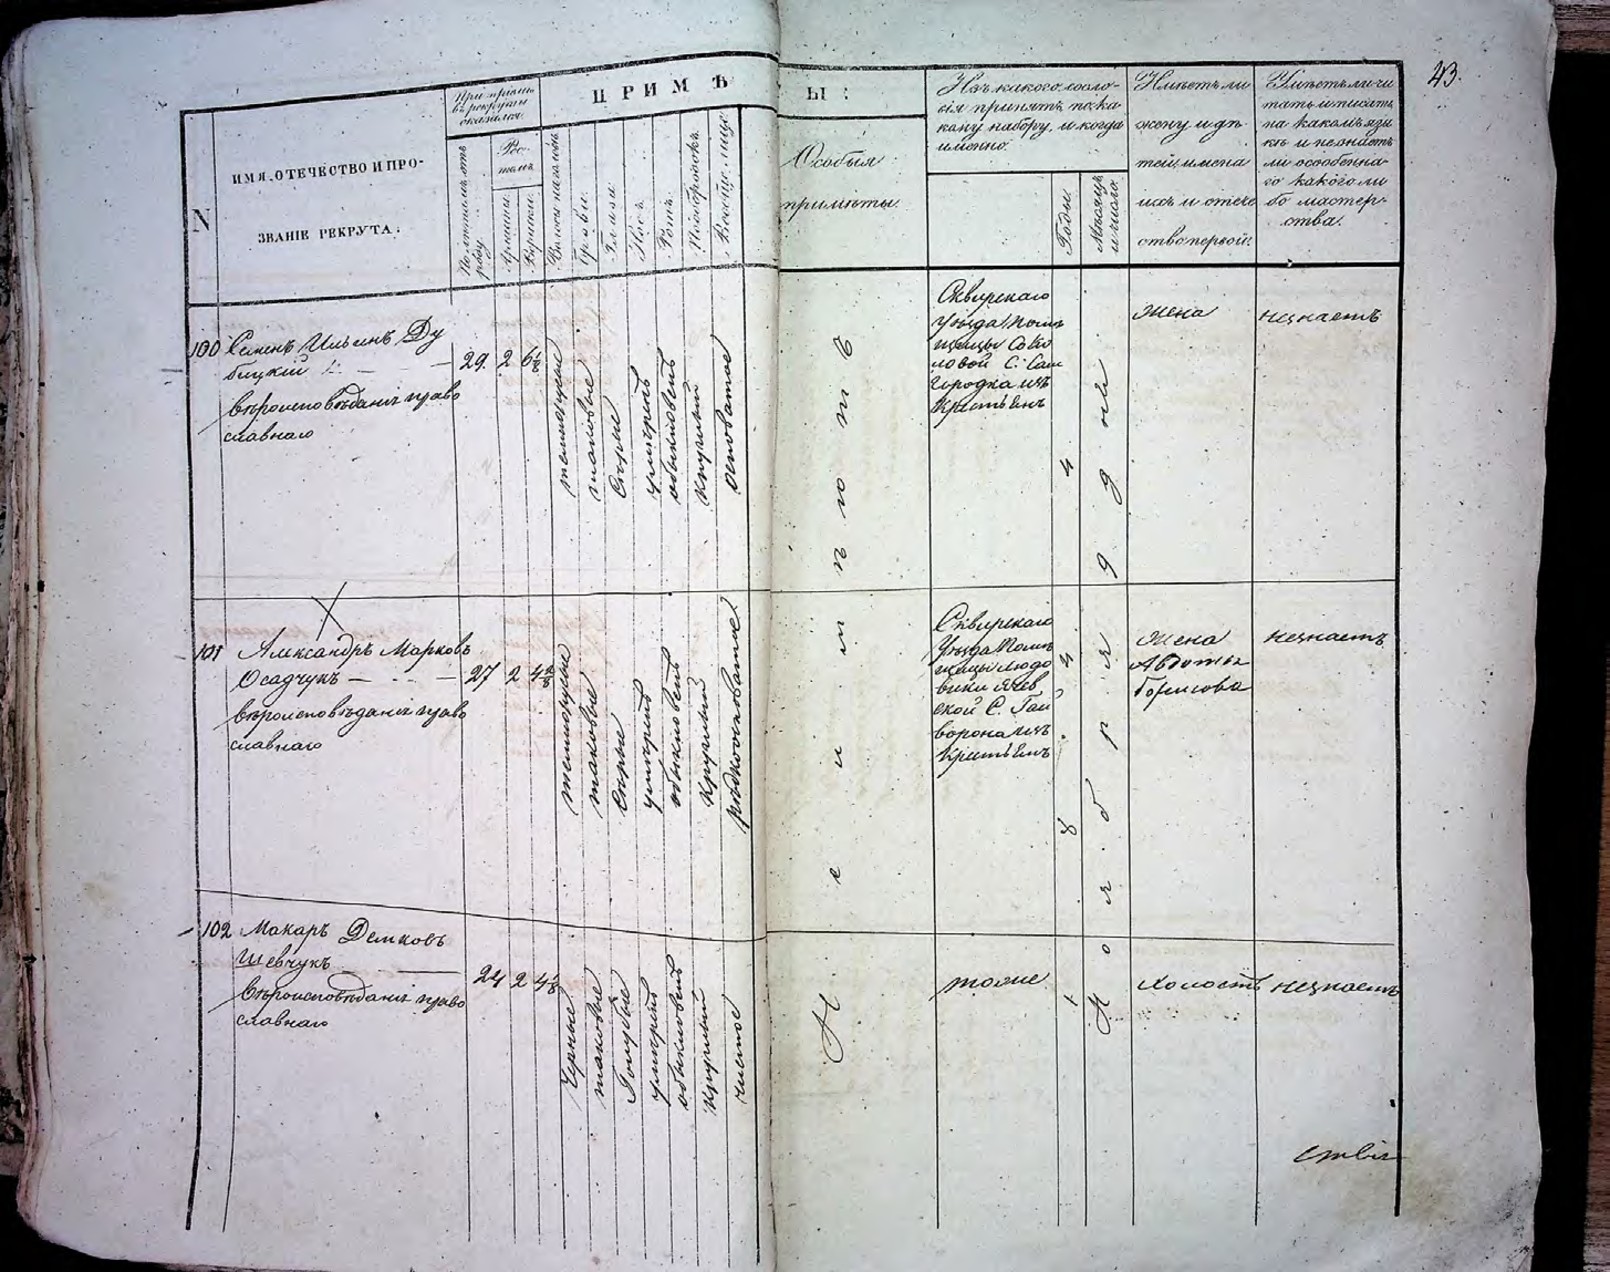 43.
N
ИМЯ, ОТЕЧЕСТВО И ПРО-
ЗВАНІЕ РЕКРУТА:
При пріемѣ
въ рекруты
оказался:
По лѣтамъ отъ
роду
Рос-
томъ
Аршины.
Вершки.
ПРИМѢТЫ:
Волосы на головѣ
Брови.
Глаза.
Носъ.
Ротъ.
Подбородокъ.
Вообще, лице
Особыя
примѣты.
Изъ какого сосло-
вія принятъ по ка
кому набору, и когда
именно:
Годы.
Мѣсяцъ
и число.
Имѣетъ ли
жену и дѣ-
тей, имена
ихъ и отече
ство первой:
Умѣетъ ли чи
тать и писать
на какомъ язы
кѣ и не знаетъ
ли особенна-
го какого ли
бо мастер-
ства.
100 Семенъ Ильинъ Ду
бицкій
вѣроисповѣданія право
славнаго
29. 2 6⅛
темнорусые
таковые
Сѣрые
умѣренъ
обыкновенъ
Круглый
Неимѣетъ
Сквирскаго
Уѣзда Помѣ
щицы
ловой С.
городка изъ
Крестьянъ
184
Ноября 9 дня
жена
незнаетъ
101 Александръ Марковъ
Осадчукъ
вѣроисповѣданія право
славнаго
27 2 4⅜
темнорусые
таковые
Сѣрые
умѣренъ
обыкновенъ
Круглый
Сквирскаго
Уѣзда Помѣ
щицы Людо
вики
ской С. Гай
ворона изъ
Крестьянъ
4
Жена
Авдотья
Борисова
незнаетъ
102 Макаръ Демковъ
Шевчукъ
вѣроисповѣданія право
славнаго
24 2 4⅛
Черные
таковые
Голубые
умѣренъ
обыкновенъ
Круглый
чистое
тоже
Холостъ
незнаетъ